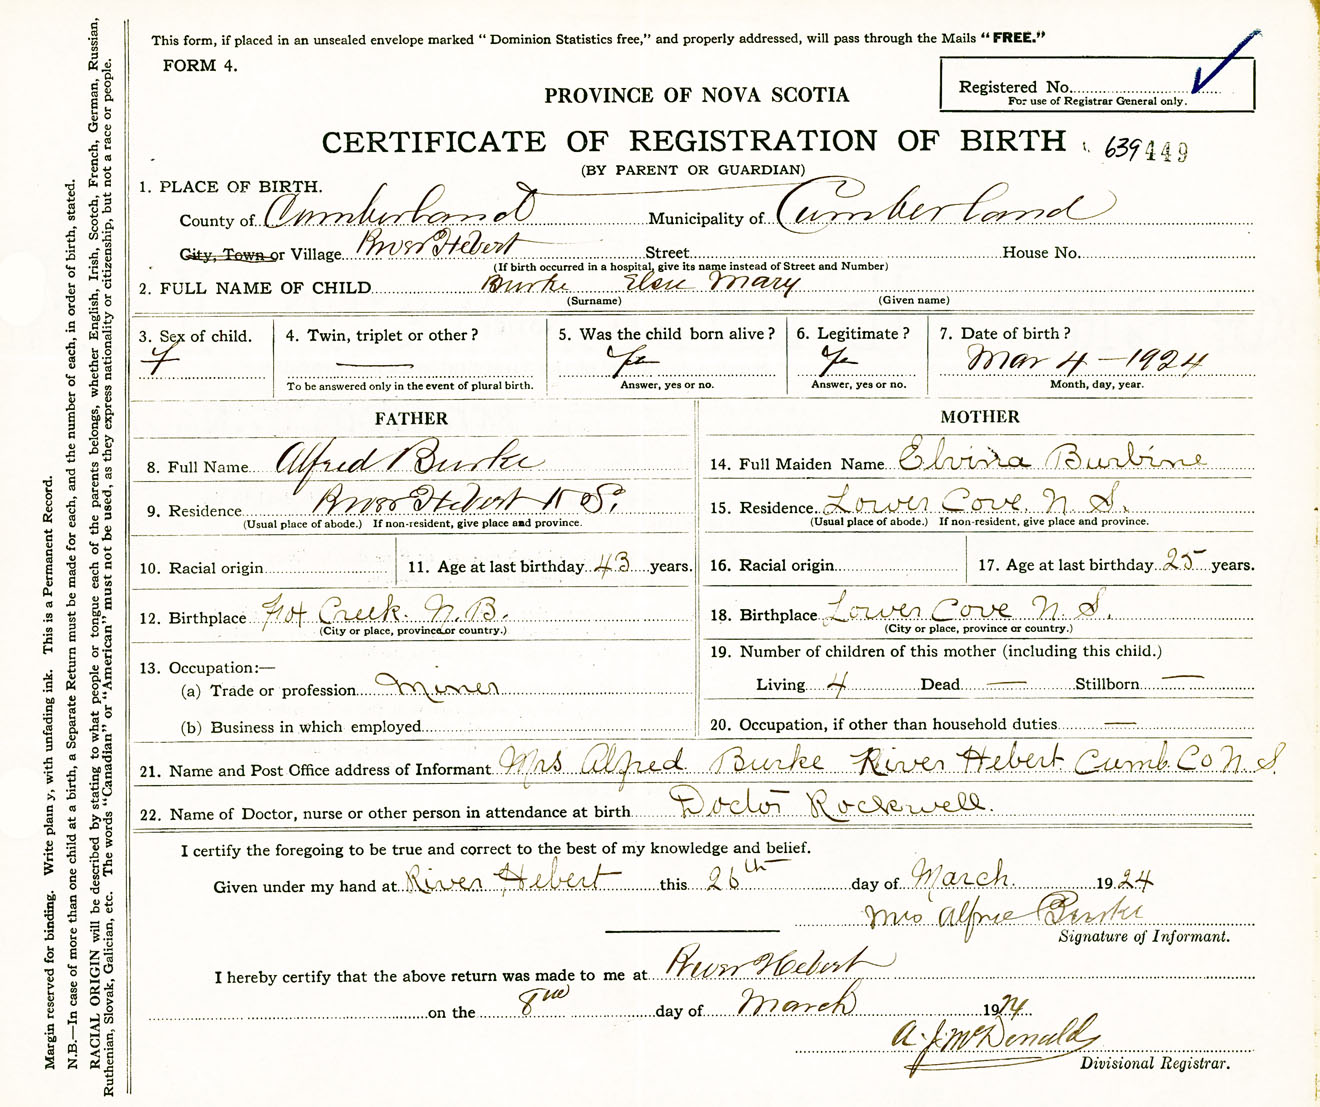 This form, if placed in an unsealed envelope marked “ Dominion Statistics free,” and properly addressed, will pass through the Mails “FREE.”
FORM 4.
Registered No.
For use of Registrar General only.
PROVINCE OF NOVA SCOTIA
CERTIFICATE OF REGISTRATION OF BIRTH 639449
(BY PARENT OR GUARDIAN)
1. PLACE OF BIRTH.
County of Cumberland Municipality of Cumberland
City, Town or Village River Hebert Street House No.
(If birth occurred in a hospital, give its name instead of Street and Number)
2. FULL NAME OF CHILD Burke Elsie Mary
(Surname) (Given name)
3. Sex of child. 4. Twin, triplet or other ? 5. Was the child born alive ? 6. Legitimate ? 7. Date of birth ?
f — Yes Yes Mar 4 – 1924
To be answered only in the event of plural birth. Answer, yes or no. Answer, yes or no. Month, day, year.
FATHER MOTHER
8. Full Name Alfred Burke 14. Full Maiden Name Elvina Burbine
9. Residence River Hebert N S. 15. Residence. Lower Cove N. S.
(Usual place of abode.) If non-resident, give place and province. (Usual place of abode.) If non-resident, give place and province.
10. Racial origin 11. Age at last birthday 43 years. 16. Racial origin 17. Age at last birthday 25 years.
12. Birthplace Fox Creek N.B. 18. Birthplace Lower Cove N. S.
(City or place, province or country.) (City or place, province or country.)
13. Occupation:— 19. Number of children of this mother (including this child.)
(a) Trade or profession Miner Living 4 Dead — Stillborn —
(b) Business in which employed 20. Occupation, if other than household duties —
21. Name and Post Office address of Informant Mrs Alfred Burke River Hebert Cumb. Co N. S
22. Name of Doctor, nurse or other person in attendance at birth Doctor Rockwell.
I certify the foregoing to be true and correct to the best of my knowledge and belief.
Given under my hand at River Hebert this 26th day of March. 1924
Mrs Alfred Burke
Signature of Informant.
I hereby certify that the above return was made to me at River Hebert
on the day of March 1924
A. J. McDonald
Divisional Registrar.
Margin reserved for binding. Write plainy, with unfading ink. This is a Permanent Record.
N.B.—In case of more than one child at a birth, a Separate Return must be made for each, and the number of each, in order of birth, stated.
RACIAL ORIGIN will be described by stating to what people or tongue each of the parents belongs, whether English, Irish, Scotch, French, German, Russian,
Ruthenian, Slovak, Galician, etc. The words “Canadian” or “American” must not be used, as they express nationality or citizenship, but not a race or people.